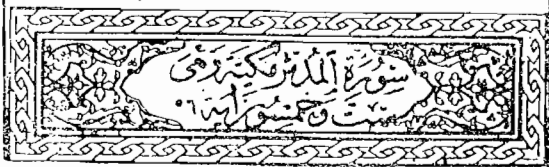 سُورَةُ المُدَّثِّر مَكِيَة وَهِيَ
سِتٌّ وَخَمْسُونَ اٰيَة ٥٦